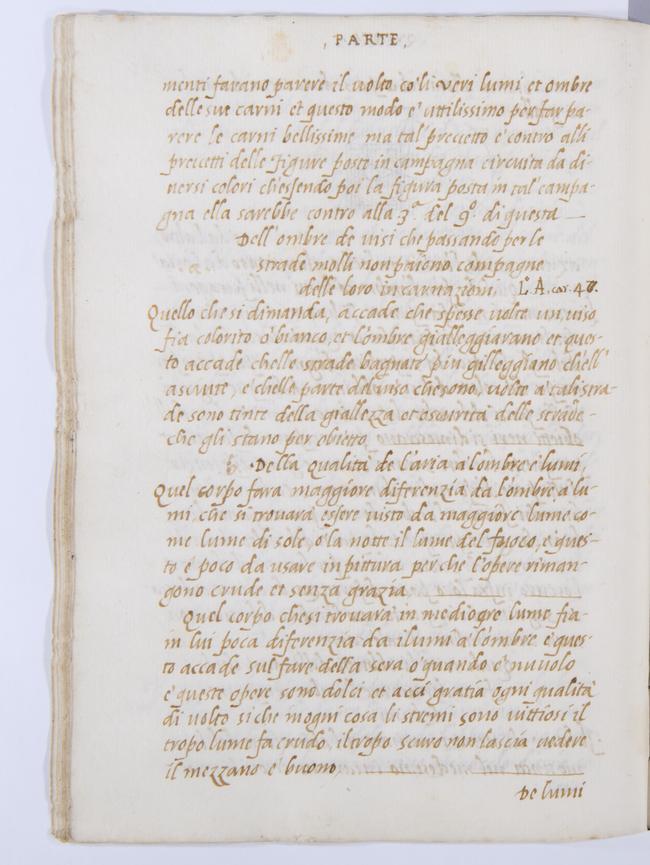 , PARTE ,
menti farano parere il uolto co'li veri lumi et ombre
delle sue carni et questo modo e' uttilissimo per far pa-
rere le carni bellissime ma tal' preccetto e contro alli
preccetti delle Figure poste in campagna circuita da di-
uersi colori ch'essendo poi la figura posta in tal' campa-
gna ella sarebbe contro alla 3.a del 9.o di questa —
Dell'ombre de visi che passando per le
strade molli non paiono compagne
delle loro incarnazioni L.A. car. 47.
Quello che si dimanda, accade che spesse volte un uiso
fia colorito o' bianco, et l'ombre gialleggiarano et ques-
to accade chelle strade bagnate piu gilleggiano ch'ell'
asciute, e chelle parte del uiso che sono uolte a' tali stra-
de sono tinte della giallezza et oscurità delle strade
che gli stano per obietto
Della qualità de l'aria a l'ombre e lumi,
Quel corpo fara maggiore diferenzia da l'ombre a' lu-
mi, che si trouara essere uisto da maggiore lume co-
me lume di sole, o' la notte il lume del fuoco, e ques-
to e' poco da usare in pittura perche l'opere riman-
gono crude et senza grazia
Quel corpo che si trouara in mediocre lume fia
in lui poca diferenzia da i lumi a l'ombre e ques-
to accade sul fare della sera o' quando e' nuuolo
e queste opere sono dolci et acci gratia ogni qualità
di uolto si che in ogni cosa li stremi sono uittiosi il
tropo lume fa crudo, il tropo scuro non lascia uedere
il mezzano e' buono
De lumi